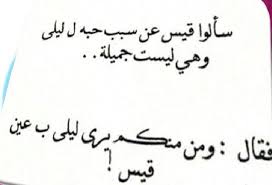 سألوا قيس عن سبب حبه ل ليلى
وهي ليست جميلة . .
فقال : ومن منكم يرى ليلى ب عين
قيس !